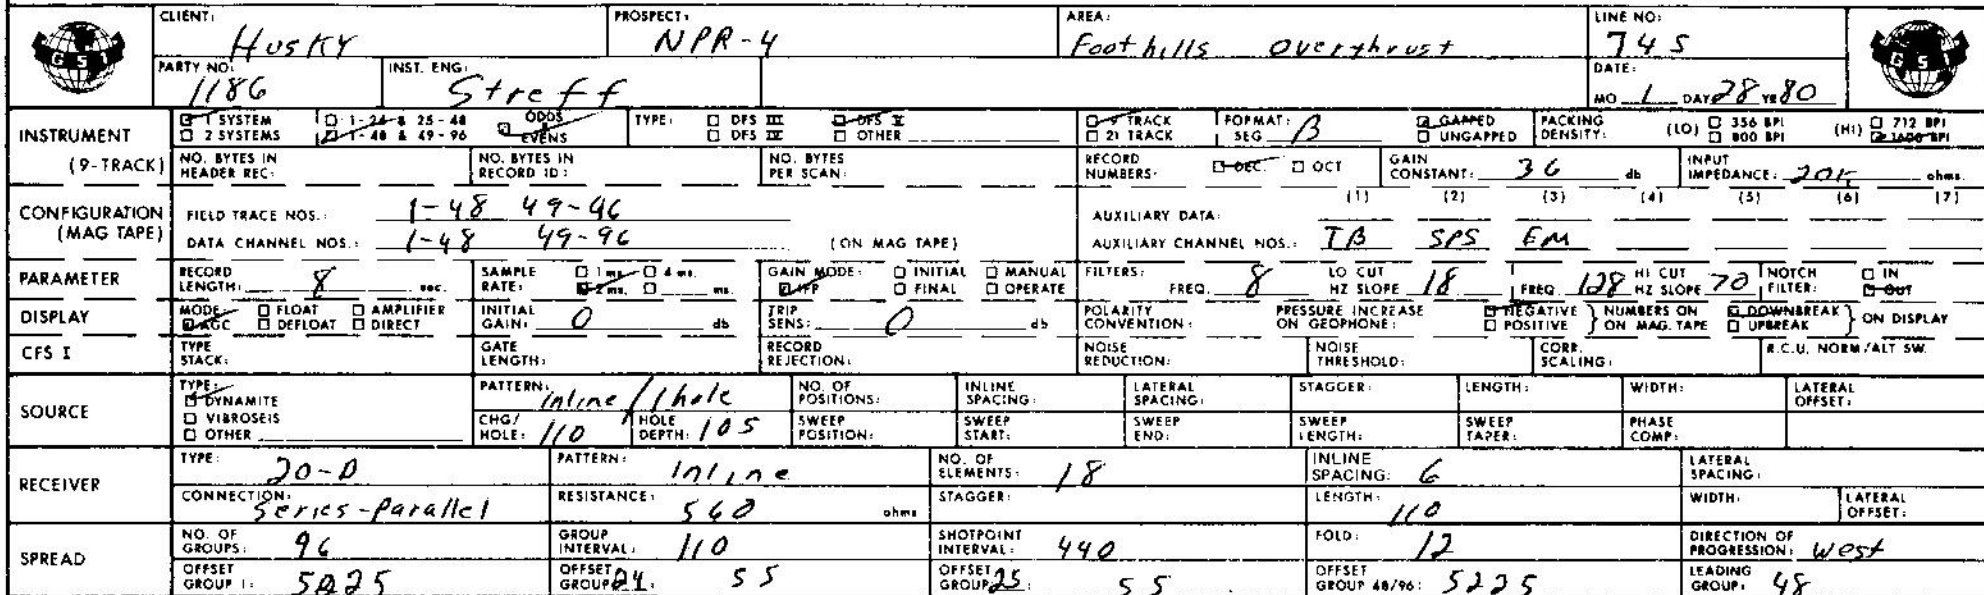 CLIENT: Husky PROSPECT: NPR-4 AREA: Foothills Overthrust LINE NO: 745
GSI GSI
PARTY NO: 1186 INST. ENG: Streff DATE: MO 1 DAY 28 YR 80
INSTRUMENT (9-TRACK) 1 SYSTEM 1-24 & 25-48 ODDS TYPE: DFS III DFS V 9 TRACK FORMAT: SEG B GAPPED PACKING DENSITY: (LO) 356 BPI (HI) 712 BPI
2 SYSTEMS 1-48 & 49-96 EVENS DFS IV OTHER 21 TRACK UNGAPPED 800 BPI 1600 BPI
NO. BYTES IN HEADER REC: NO. BYTES IN RECORD ID: NO. BYTES PER SCAN: RECORD NUMBERS: DEC. OCT GAIN CONSTANT: 36 db INPUT IMPEDANCE: 20K ohms.
CONFIGURATION (MAG TAPE) FIELD TRACE NOS.: 1-48 49-96 AUXILIARY DATA: (1) (2) (3) (4) (5) (6) (7)
DATA CHANNEL NOS.: 1-48 49-96 (ON MAG TAPE) AUXILIARY CHANNEL NOS.: TB SPS EM
PARAMETER RECORD LENGTH: 8 sec. SAMPLE RATE: 1 ms. 4 ms. 2 ms. ms. GAIN MODE: INITIAL MANUAL IFP FINAL OPERATE FILTERS: FREQ. 8 LO CUT HZ SLOPE 18 FREQ. 128 HI CUT HZ SLOPE 70 NOTCH FILTER: IN OUT
DISPLAY MODE: FLOAT AMPLIFIER AGC DEFLOAT DIRECT INITIAL GAIN: 0 db TRIP SENS: 0 db POLARITY CONVENTION: PRESSURE INCREASE ON GEOPHONE: NEGATIVE POSITIVE NUMBERS ON ON MAG. TAPE DOWNBREAK UPBREAK ON DISPLAY
CFS I TYPE STACK: GATE LENGTH: RECORD REJECTION: NOISE REDUCTION: NOISE THRESHOLD: CORR. SCALING: R.C.U. NORM/ALT SW.
SOURCE TYPE: DYNAMITE VIBROSEIS OTHER PATTERN: inline / 1 hole NO. OF POSITIONS: INLINE SPACING: LATERAL SPACING: STAGGER: LENGTH: WIDTH: LATERAL OFFSET:
CHG/HOLE: 110 HOLE DEPTH: 105 SWEEP POSITION: SWEEP START: SWEEP END: SWEEP LENGTH: SWEEP TAPER: PHASE COMP:
RECEIVER TYPE: 20-D PATTERN: Inline NO. OF ELEMENTS: 18 INLINE SPACING: 6 LATERAL SPACING:
CONNECTION: Series-Parallel RESISTANCE: 560 ohms STAGGER: LENGTH: 110 WIDTH: LATERAL OFFSET:
SPREAD NO. OF GROUPS: 96 GROUP INTERVAL: 110 SHOTPOINT INTERVAL: 440 FOLD: 12 DIRECTION OF PROGRESSION: West
OFFSET GROUP 1: 5225 OFFSET GROUP 24: 55 OFFSET GROUP 25: 55 OFFSET GROUP 48/96: 5225 LEADING GROUP: 48